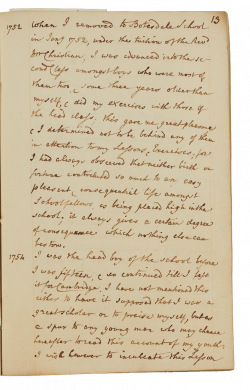 13
1752 When I removed to Botesdale School
in Jany 1752, under the tuition of the Revd
Mr Christian, I was advanced into the se-
cond Class amongst boys who were most of
them two, & some three years older than
myself, & did my exercises with those of
the head class, this gave me great shame
& I determined not to be behind any of them
in attention to my Lessons, & exercises, for
I had always observed that neither birth or
fortune contributed so much to an easy
pleasant, consequential life amongst
Schoolfellows as being placed high in the
school, it always gives a certain degree
of consequence which nothing else can
bestow.
1754 I was the head boy of the school before
I was fifteen, & so continued till I left
it for Cambridge, I have not mentioned this
either to have it supposed that I was a
great scholar or to praise myself, but as
a spur to any young men who may chance
hereafter to read this account of my youth;
I wish however to inculcate this Lesson